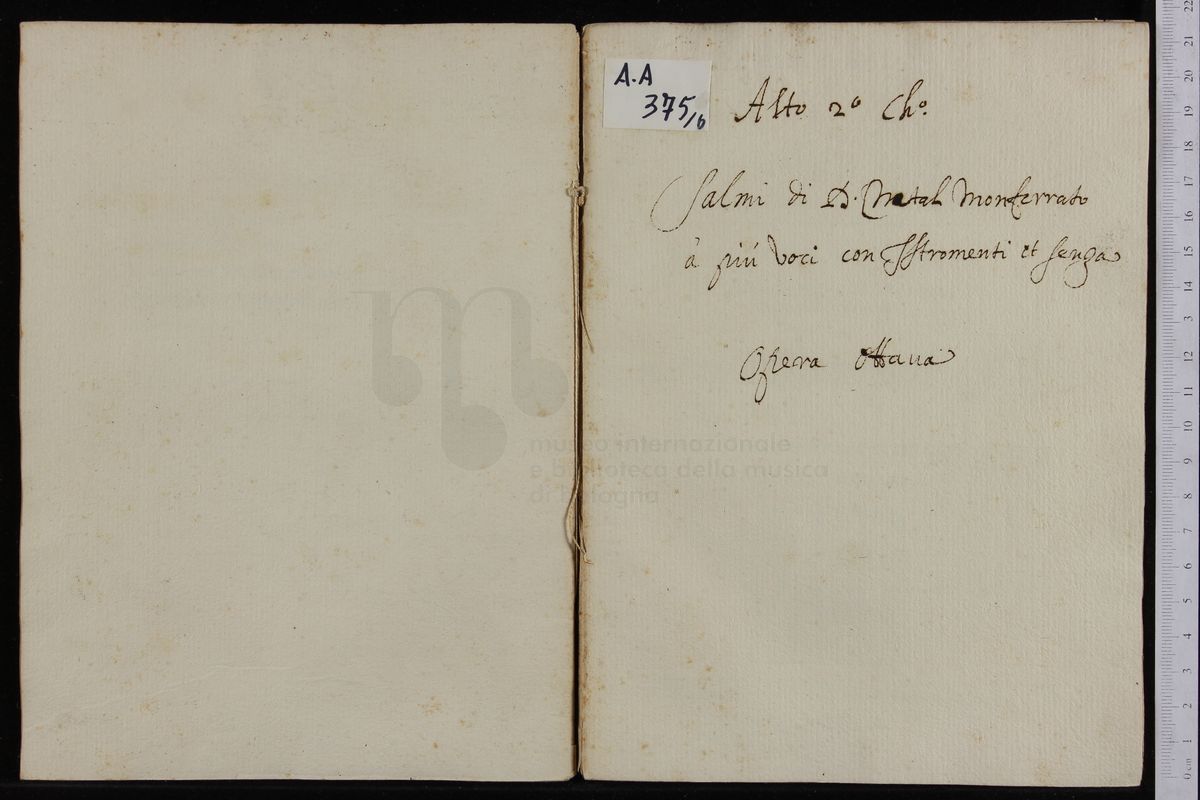 A.A
375/6
Alto 2º Chº.
Salmi di D. Natal Monferrato
à più voci con Istromenti et senza
Opera Ottaua
museo internazionale
e biblioteca della musica
di bologna
0 cm 1 2 3 4 5 6 7 8 9 10 11 12 3 14 15 16 17 18 19 20 21 22